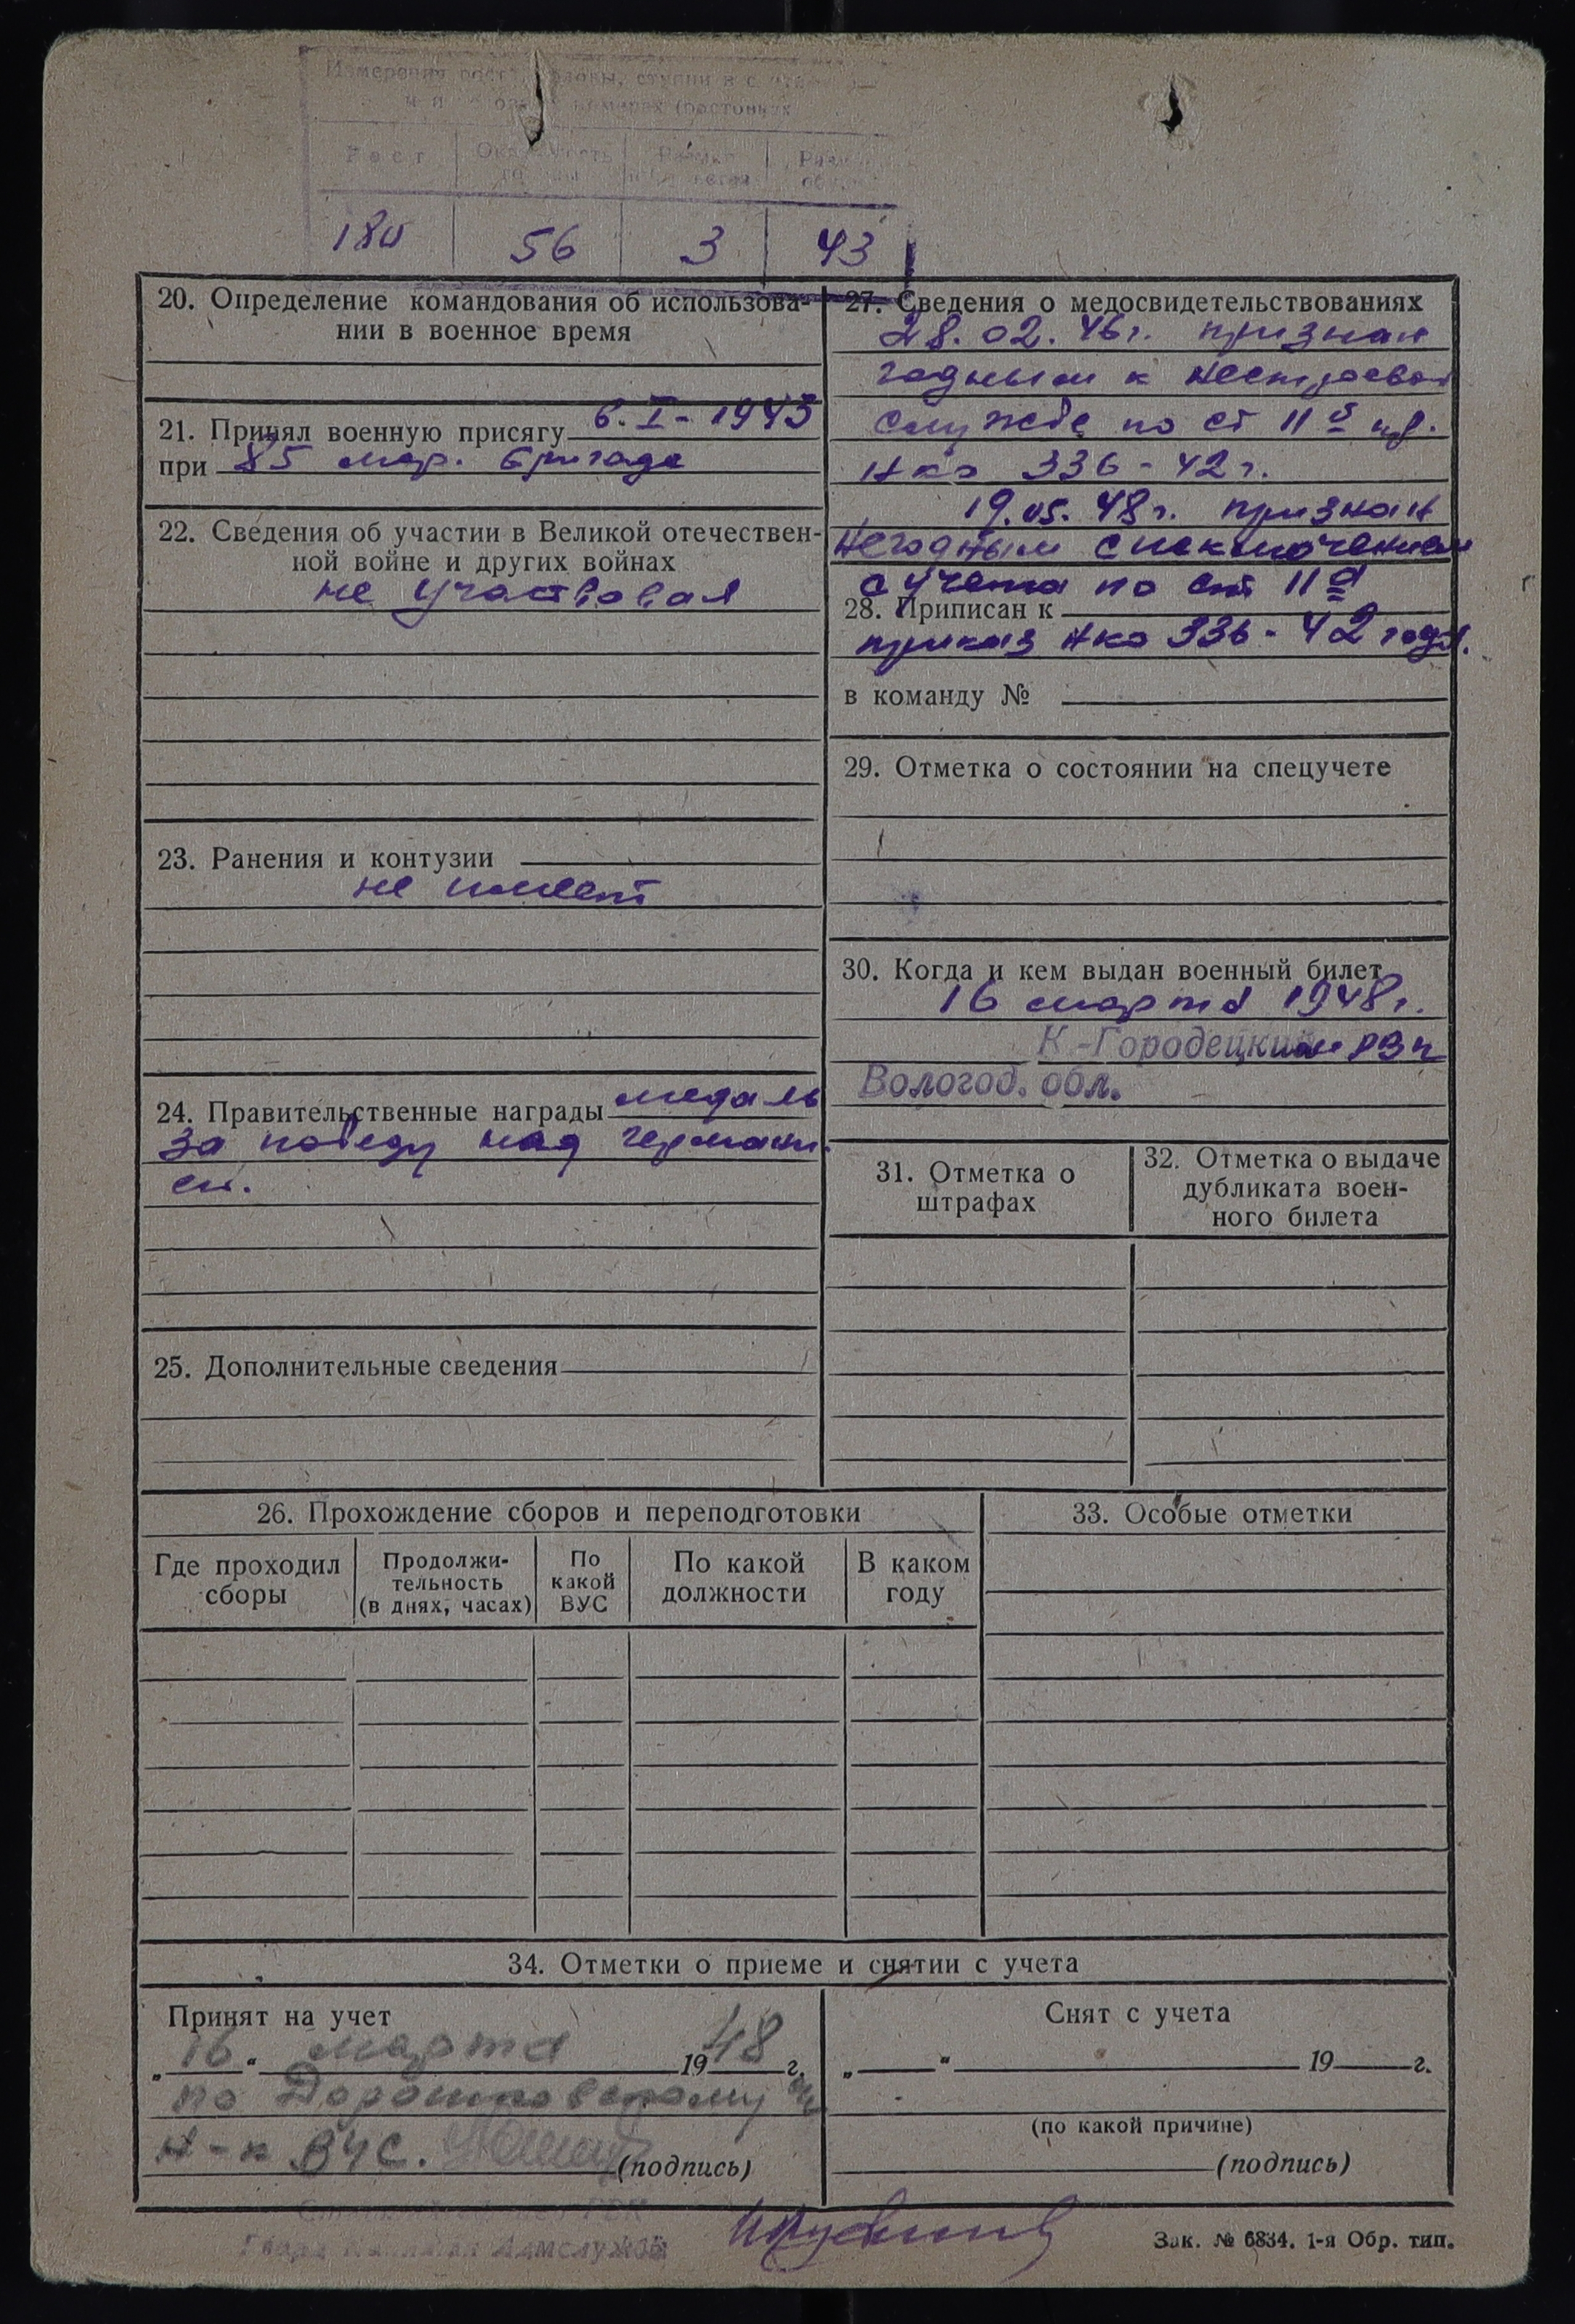 Измерения
180 56 3 43
20. Определение командования об использова-
нии в военное время
21. Принял военную присягу 6.I-1943
при 85 мар. бригаде
22. Сведения об участии в Великой отечествен-
ной войне и других войнах
не участвовал
23. Ранения и контузии
не имеет
24. Правительственные награды медаль
за победу над германи
ей.
25. Дополнительные сведения
27. Сведения о медосвидетельствованиях
28.02.46г. признан
годным к нестроевой
службе по ст 11
нко 336-42г.
19.05.48г. признан
негодным с исключением
с учета по ст 11а
28. Приписан к
приказ нко 336-42 года.
в команду №
29. Отметка о состоянии на спецучете
30. Когда и кем выдан военный билет
16 марта 1948г.
К-Городецким РВК
Вологод. обл.
31. Отметка о
штрафах
32. Отметка о выдаче
дубликата воен-
ного билета
26. Прохождение сборов и переподготовки
Где проходил
сборы
Продолжи-
тельность
(в днях, часах)
По
какой
ВУС
По какой
должности
В каком
году
33. Особые отметки
34. Отметки о приеме и снятии с учета
Принят на учет
„16“ марта 1948 г.
по
Н-к ВУС.
(подпись)
Снят с учета
„ “ 19 г.
(по какой причине)
(подпись)
Зак. № 6834. 1-я Обр. тип.